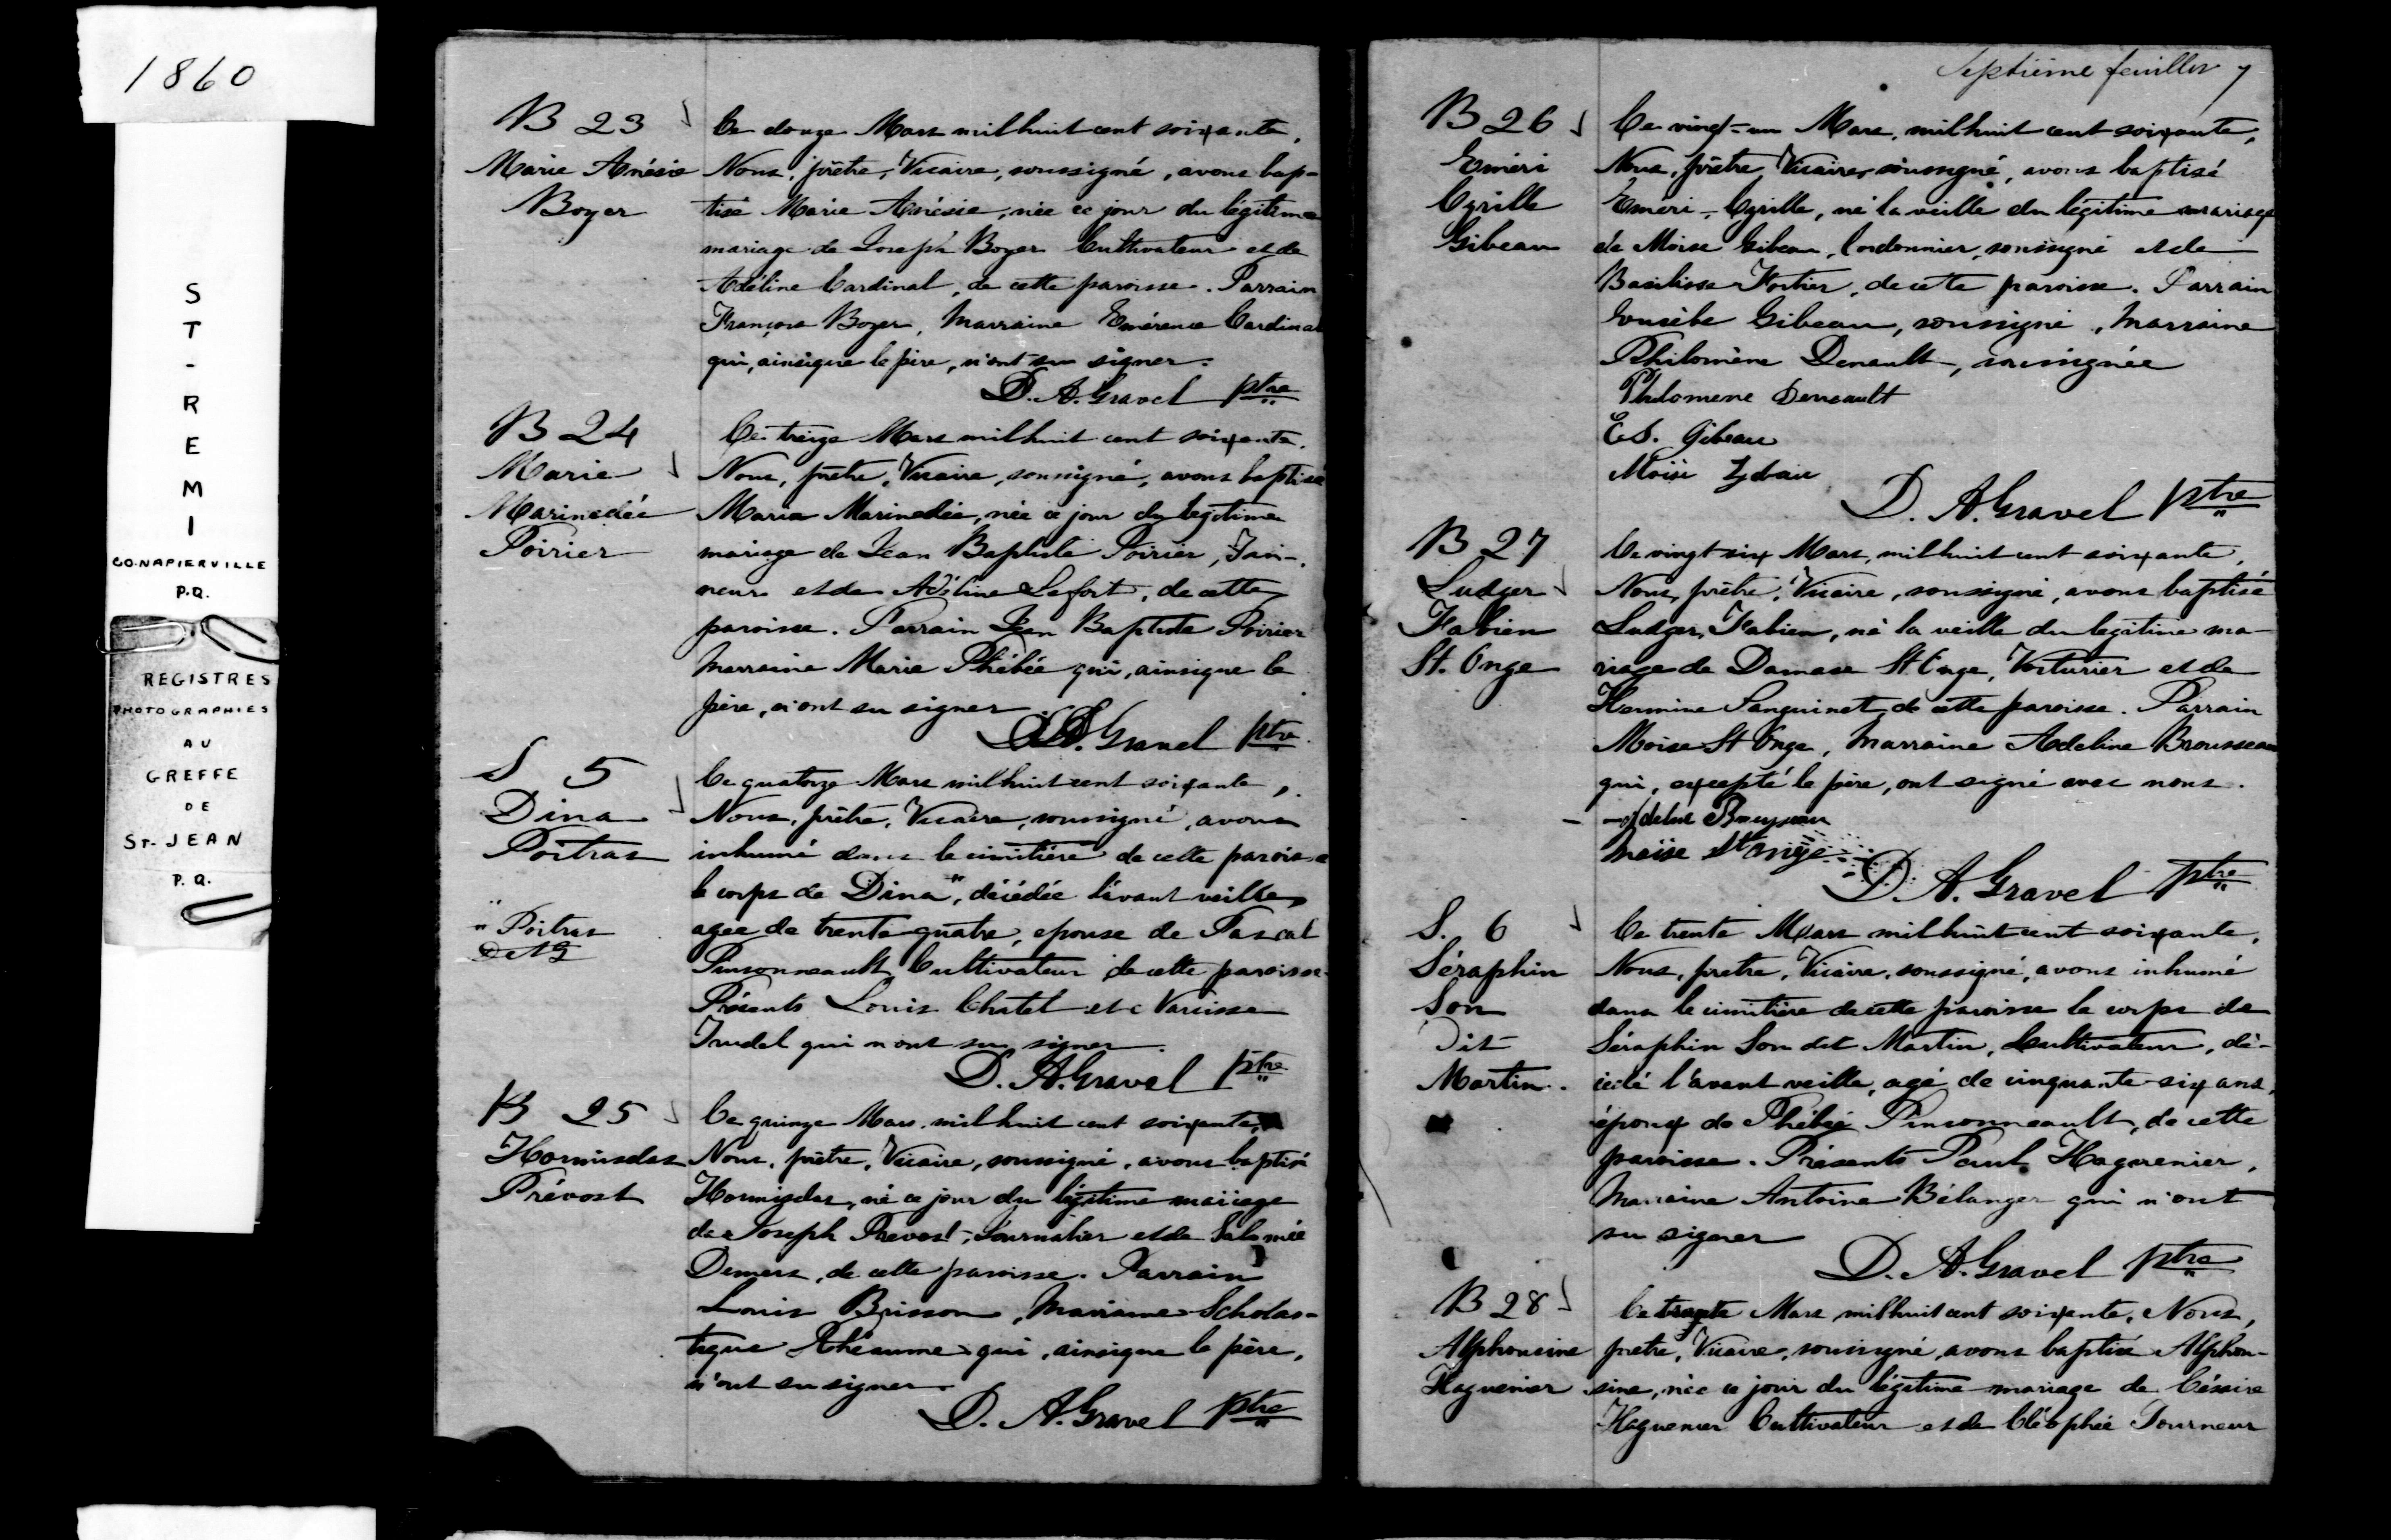 1860
S
T
-
R
E
M
I
CO. NAPIERVILLE
P.Q.
REGISTRES
PHOTOGRAPHIES
AU
GREFFE
DE
ST-JEAN
P.Q.
B 23
Marie Anésie
Boyer
Ce douze Mars mil huit cent soixante,
Nous, prêtre, Vicaire, soussigné, avons bap-
tisé Marie Anésie, née ce jour du légitime
mariage de Joseph Boyer Cultivateur et de
Adéline Cardinal, de cette paroisse. Parrain
François Boyer, Marraine Emérence Cardinal
qui, ainsi que le père, n'ont su signer.
D. A. Gravel Ptre
B 24
Marie
Marinedée
Poirier
Ce treize Mars mil huit cent soixante.
Nous, prêtre, Vicaire, soussigné, avons baptisé
Marie Marinedée, née ce jour du légitime
mariage de Jean Baptiste Poirier, Jour-
neur et de Adéline Lefort, de cette
paroisse. Parrain Jean Baptiste Poirier
Marraine Marie Phébée qui, ainsi que le
père, n'ont su signer
D. A. Gravel Ptre
S 5
Dina
Poitras
" Poitras
D A G
Ce quatorze Mars mil huit cent soixante,
Nous, prêtre, Vicaire, soussigné, avons
inhumé dans le cimitière de cette paroisse
le corps de Dina", décédée l'avant veille,
agee de trente quatre, epouse de Pascal
Pinsonneault Cultivateur de cette paroisse.
Présents Louis Chatel et Narcisse
Trudel qui n'ont su signer.
D. A. Gravel Ptre
B 25
Hormisdas
Prévost
Ce quinze Mars mil huit cent soixante,
Nous, prêtre, Vicaire, soussigné, avons baptisé
Hormisdas, né ce jour du légitime mariage
de Joseph Prevost, Journalier et de Salomée
Demers, de cette paroisse. Parrain
Louis Brisson, Marraine Scholas-
tique Rhéaume qui, ainsi que le père,
n'ont su signer.
D. A. Gravel Ptre
Septième feuillet 7
B 26
Eméri
Cyrille
Gibeau
Ce vingt-un Mars, mil huit cent soixante,
Nous, prêtre, Vicaire, soussigné, avons baptisé
Eméri-Cyrille, né la veille du légitime mariage
de Moise Gibeau, Cordonnier, soussigné et de
Basilisse Fortier, de cette paroisse. Parrain
Eusèbe Gibeau, soussigné, Marraine
Philomène Denault, soussignée
Philomene Deneault
E.S. Gibeau
Moïse
D. A. Gravel Ptre
B 27
Ludger
Fabien
St. Onge
Ce vingt-six Mars, mil huit cent soixante,
Nous, prêtre, Vicaire, soussigné, avons baptisé
Ludger Fabien, né la veille du légitime ma-
riage de Damase St Onge, Voiturier et de
Hermine Sanguinet de cette paroisse. Parrain
Moise St Onge, Marraine Adeline Brousseau
qui, excepté le père, ont signé avec nous.
Moïse St Onge
D. A. Gravel Ptre
S. 6
Séraphin
Son
Dit
Martin.
Ce trente Mars mil huit cent soixante,
Nous, prêtre, Vicaire, soussigné, avons inhumé
dans le cimitière de cette paroisse le corps de
Séraphin Son dit Martin, Cultivateur, dé-
cédé l'avant veille, agé de cinquante-six ans,
époux de Phébée Pinsonneault, de cette
paroisse. Présents Paul Haguenier,
Marraine Antoine Bélanger qui n'ont
su signer
D. A. Gravel Ptre
B 28
Alphonsine
Haguenier
Ce trente Mars mil huit cent soixante, Nous,
prêtre, Vicaire, soussigné avons baptisé Alphon-
sine, née ce jour du légitime mariage de Césaire
Haguenier Cultivateur et de Cléophée Tourneur